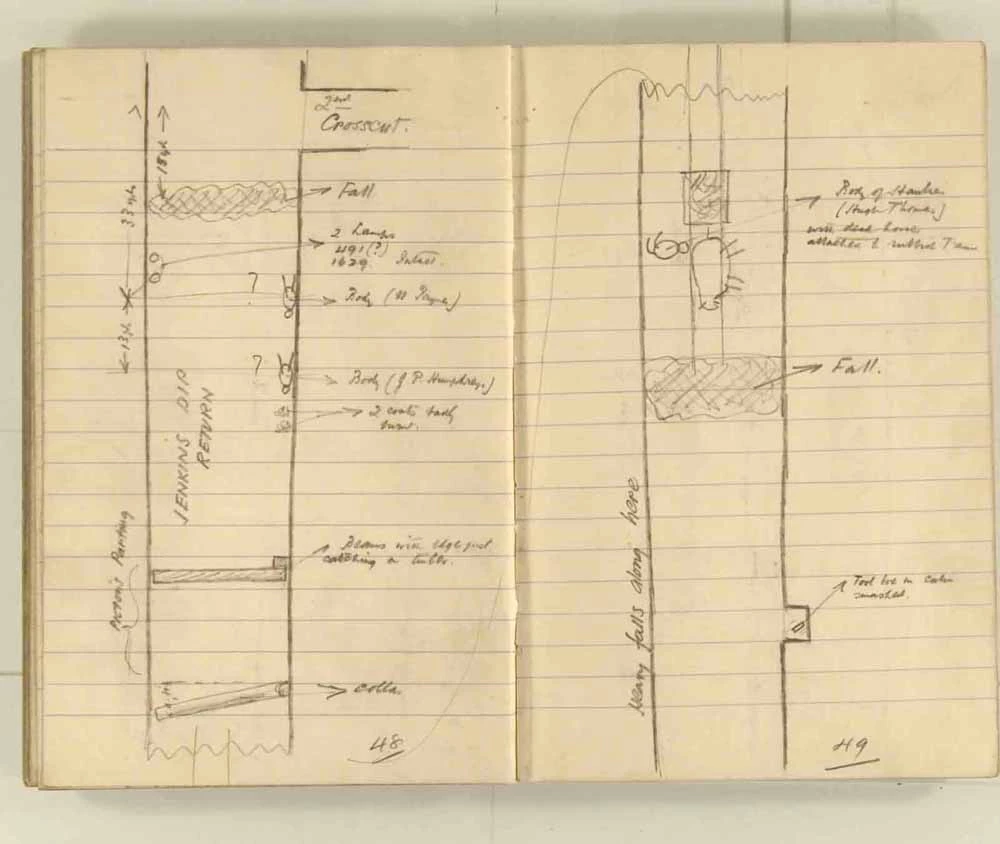 2nd
Crosscut.
18 yds
Fall
33 yds
2 Lamps
491(?)
1629 Intact.
?
Body (N
13 yds
?
Body (J P Humphreys)
2 coats badly
burnt.
JENKINS DIP
RETURN
Parting
Beams with edge just
catching on timber.
collar
48
Body of Haulier
(Hugh Thomas)
with dead horse
attached to
Fall.
Heavy falls along here
Tool box in cabin
smashed.
49